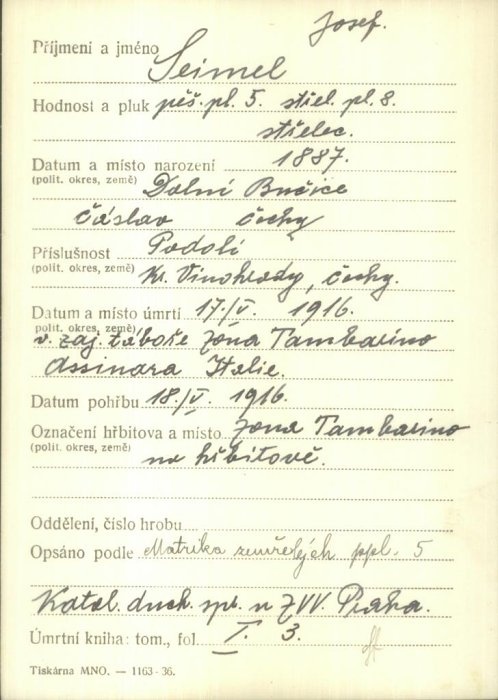 Josef.
Příjmení a jméno Seimel
Hodnost a pluk pěš. pl. 5. střel. pl. 8.
střelec.
Datum a místo narození 1887.
(polit. okres, země) Dolní Bučice
Čáslav Čechy
Příslušnost Podolí
(polit. okres, země) Kr. Vinohrady, Čechy.
Datum a místo úmrtí 17./V. 1916.
polit. okres, země) v. zaj. táboře Zóna Tambarino
Assinara Italie.
Datum pohřbu 18./V. 1916.
Označení hřbitova a místo Zona Tambarino
(polit. okres, země) na hřbitově.
Oddělení, číslo hrobu
Opsáno podle Matrika zemřelých ppl. 5
Katol. duch. spr. u ZVV. Praha.
Úmrtní kniha: tom., fol. I. 3.
Tiskárna MNO. — 1163-36.